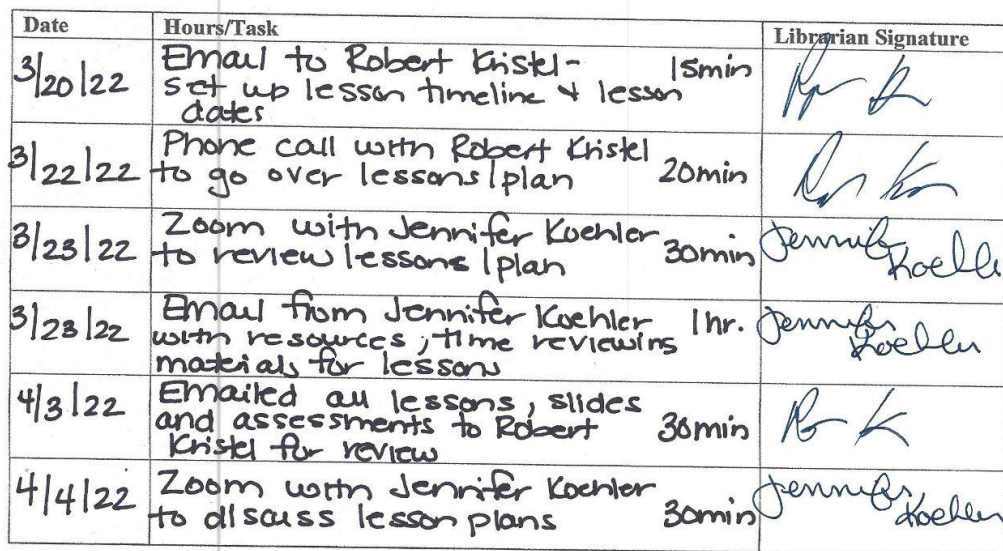 Date Hours/Task Librarian Signature
3/20/22 Email to Robert Kristel- 15min
set up lesson timeline & lesson
dates
3/22/22 Phone call with Robert Kristel
to go over lessons/plan 20min
3/23/22 Zoom with Jennifer Koehler
to review lessons/plan 30min Jennifer
Koehler
3/23/22 Email from Jennifer Koehler 1hr. Jennifer
with resources, time reviewing Koehler
materials for lessons
4/3/22 Emailed all lessons, slides
and assessments to Robert 30min
Kristel for review
4/4/22 Zoom with Jennifer Koehler Jennifer
to discuss lesson plans 30min Koehler